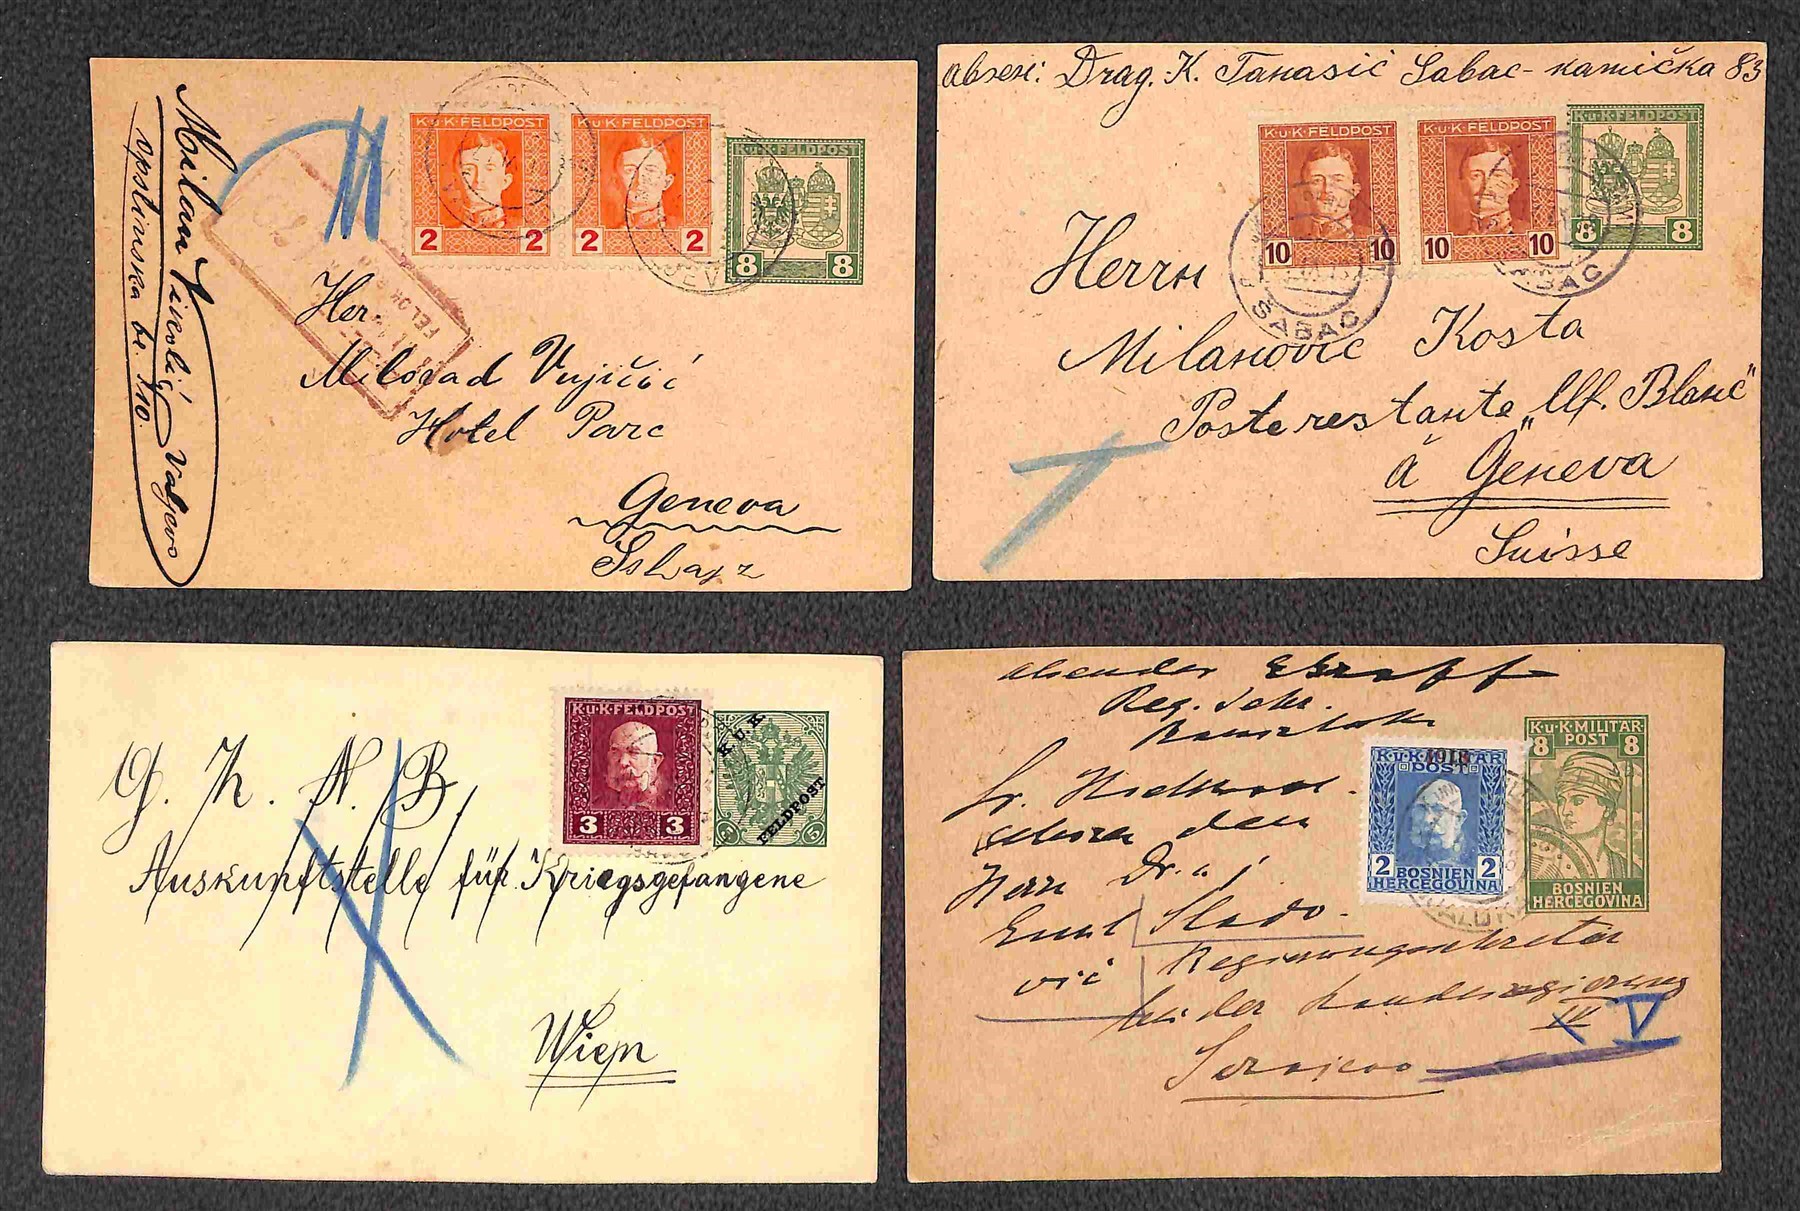 Milan Vicolić Valjevo
opštinska br. 110.
K.u.K.FELDPOST
2 2
K.u.K.FELDPOST
2 2
K.u.K.FELDPOST
8 8
Her.
Milorad Vujičić
Hotel Parc
Geneva
Švajz
absen: Drag. K. Tanasić Sabac - kamička 83
K.u.K.FELDPOST
10 10
K.u.K.FELDPOST
10 10
K.u.K.FELDPOST
8 8
SABAC
Herrn
Milanović Kosta
Poste restante "Mf. Blanc"
à Geneva
Suisse
K.u.K.FELDPOST
3 3
K.U.K.
FELDPOST
5 5
G. Z. N. B,
Auskunftstelle für Kriegsgefangene
Wien
absender
Reg. Sekr.
K.u.K.MILITÄR
POST
1918
2 2
BOSNIEN
HERCEGOVINA
K.u.K.MILITÄR
POST
8 8
BOSNIEN
HERCEGOVINA
Herrn Dr.
Emil Slado
vić Regierungssekretär
bei der Landesregierung
IV V
Serajevo